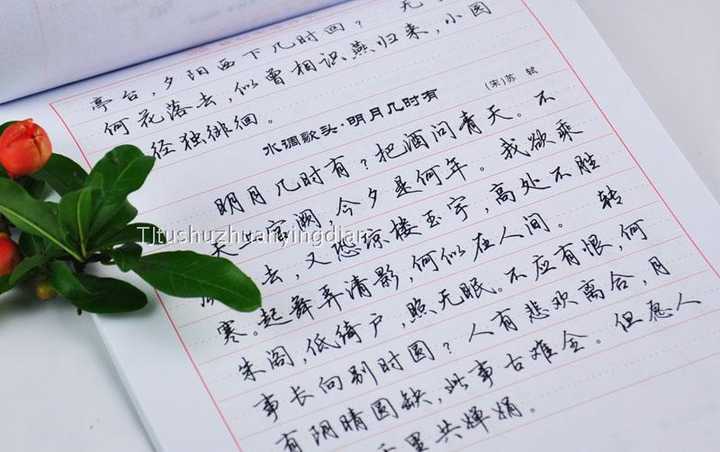 亭台，夕阳西下几时回？ 无
何花落去，似曾相识燕归来，小园
径独徘徊。
水调歌头·明月几时有
(宋)苏 轼
明月几时有？把酒问青天。不
天上宫阙，今夕是何年。我欲乘
去，又恐琼楼玉宇，高处不胜
寒。起舞弄清影，何似在人间。 转
朱阁，低绮户，照无眠。不应有恨，何
事长向别时圆？人有悲欢离合，月
有阴晴圆缺，此事古难全。但愿人
千里共婵娟。
TJtushuzhuanyingdian